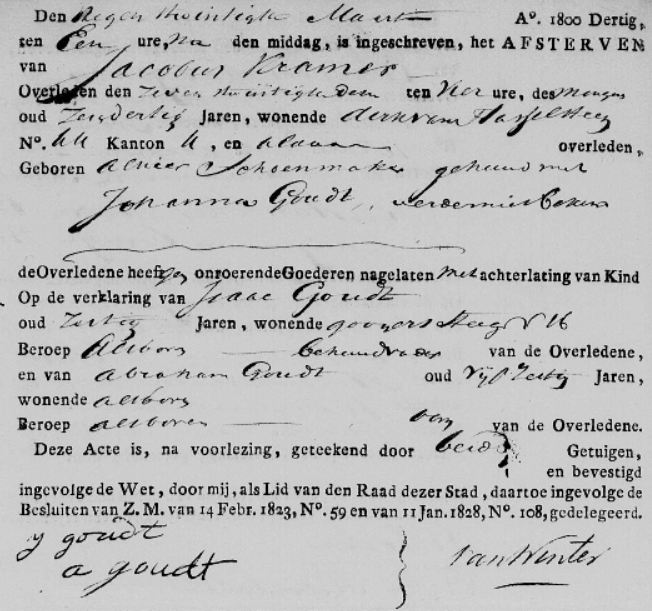 Den Negen twintigste Maart A°. 1800 Dertig,
ten Een ure, na den middag, is ingeschreven, het AFSTERVEN
van Jacobus Kramer
Overleden den Zeven twintigste dezer ten Vier ure, des Morgens
oud Zes dertig Jaren, wonende dirk van Hasselt Steeg
N°. Kanton , en aldaar overleden,
Geboren alhier Schoenmaker gehuwd met
Johanna Goudt, verdere niet bekend
de Overledene heeft geen onroerende Goederen nagelaten Met achterlating van Kind
Op de verklaring van Isaac Goudt
oud Zestig Jaren, wonende N 16
Beroep Als boven behuwdvader van de Overledene,
en van abraham Goudt oud Vijf Zestig Jaren,
wonende als boven
Beroep als boven oom van de Overledene.
Deze Acte is, na voorlezing, geteekend door beide Getuigen,
en bevestigd
ingevolge de Wet, door mij, als Lid van den Raad dezer Stad, daartoe ingevolge de
Besluiten van Z. M. van 14 Febr. 1823, N°. 59 en van 11 Jan. 1828, N°. 108, gedelegeerd.
J goudt
a goudt
Van Winter